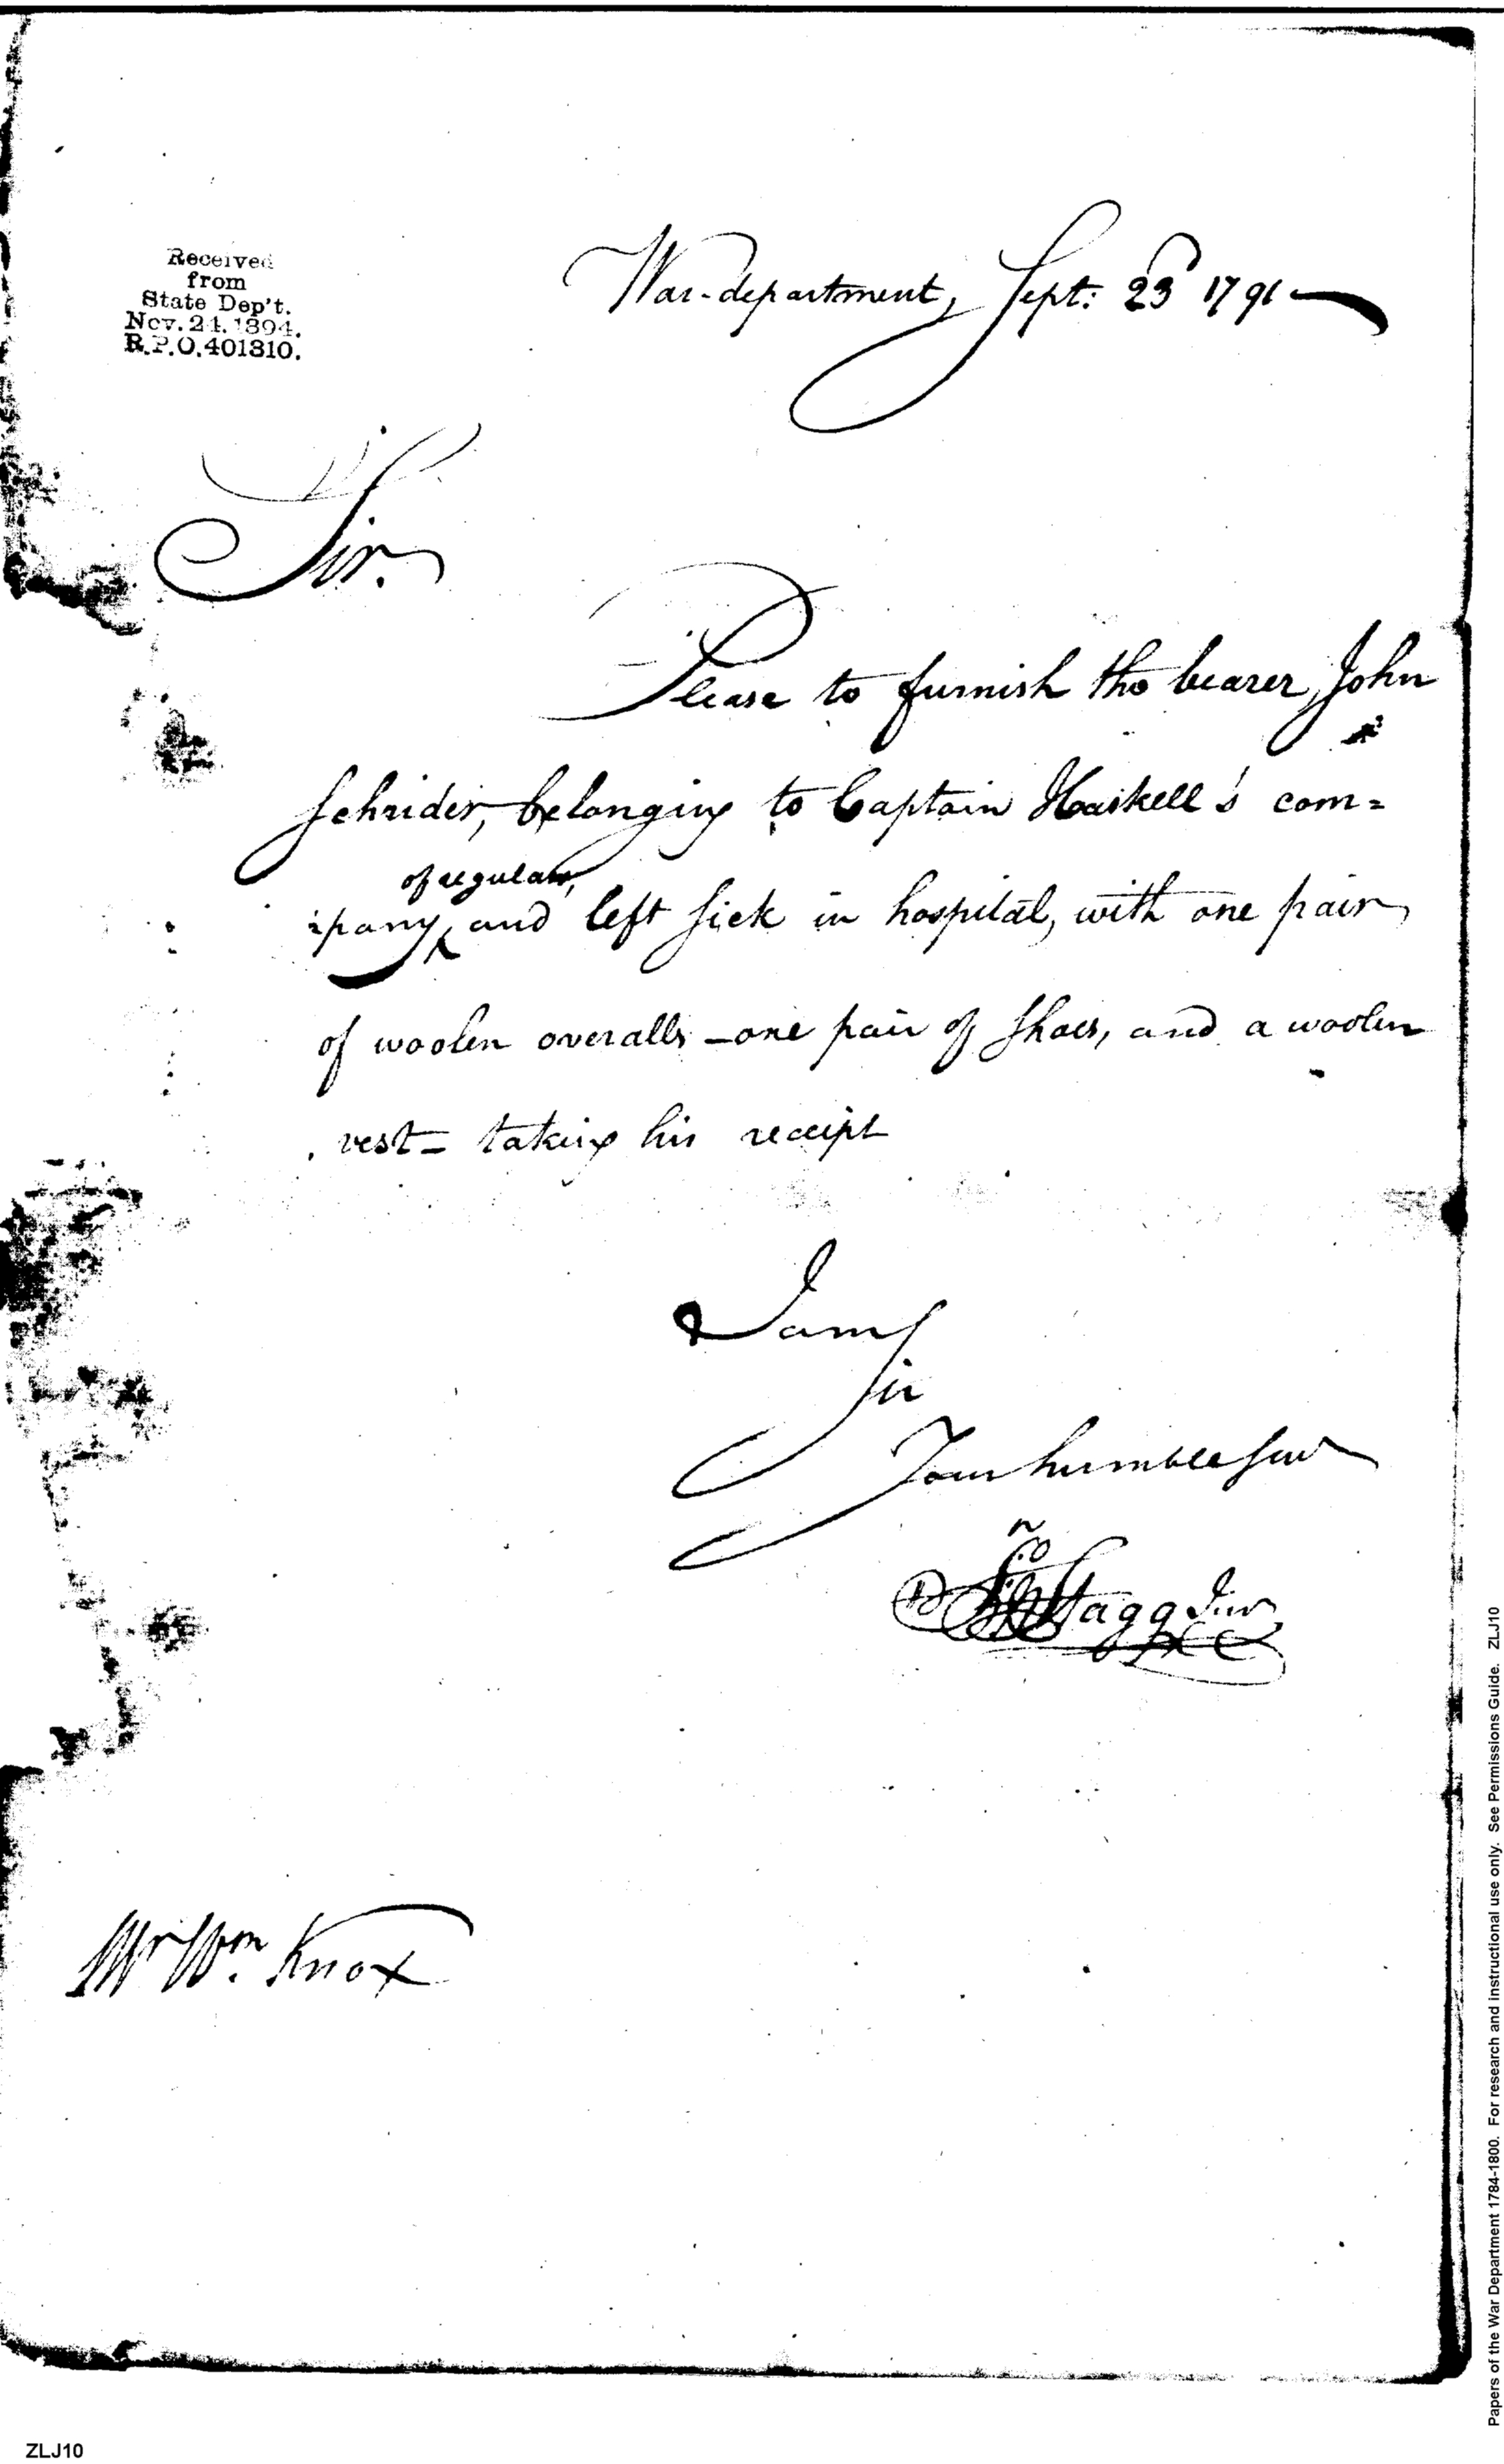 Received
from
State Dep't.
Nov. 24. 1894.
R.P.O. 401310.
War-department, Sept: 23d 1791
Sir.
Please to furnish the bearer, John
Schrider, belonging to Captain Haskell's com=
of regulars,
=pany, and left sick in hospital, with one pair
of woolen overalls - one pair of shoes, and a woolen
vest - taking his receipt
I am
Sir
Your humble Servt
Jno Stagg Junr
Mr Wm. Knox
ZLJ10
Papers of the War Department 1784-1800. For research and instructional use only. See Permissions Guide. ZLJ10